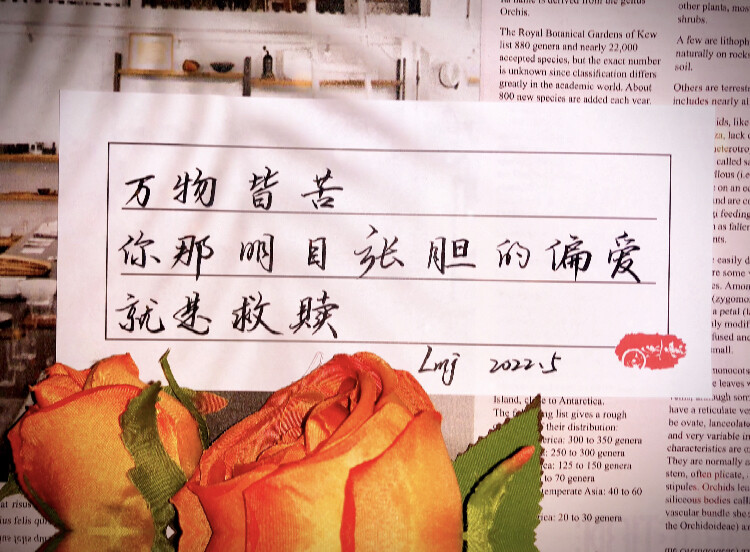 Orchis.
The Royal Botanical Gardens of Kew
list 880 genera and nearly 22,000
accepted species, but the exact number
is unknown since classification differs
greatly in the academic world. About
800 new species are added each year.
other plants, mos
shrubs.
A few are lithoph
naturally on rock
soil.
Others are terrest
includes nearly al
万物皆苦
你那明目张胆的偏爱
就是救赎
Lmj 2022.5
Island, to Antarctica.
The list gives a rough
their distribution:
300 to 350 genera
250 to 300 genera
125 to 150 genera
to 70 genera
temperate Asia: 40 to
60
20 to 30 genera
have a reticulate
be ovate, lanceolat
and very variable in
characteristics are
They are normally
stem, often plicate,
stipules. Orchids
siliceous bodies call
vascular bundle
the Orchidoideae) a